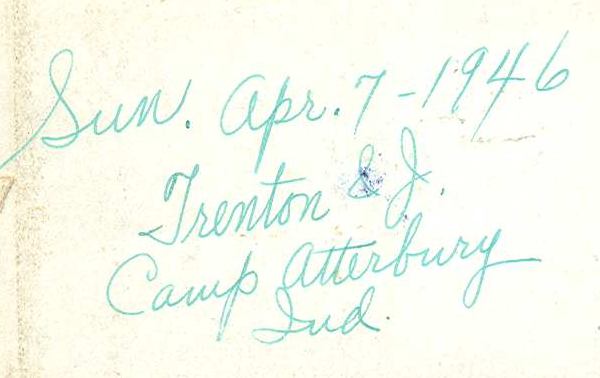 Sun. Apr. 7-1946
Trenton & J.
Camp Atterbury
Ind.